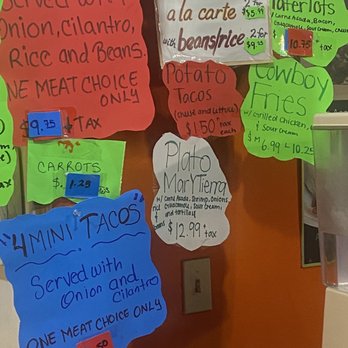 Served with
Onion, Cilantro,
Rice and Beans.
ONE MEAT CHOICE
ONLY
$ 9.75 + TAX
a la carte
2 for
$5.49
beans/rice
2 for
$9.45
Waterlots
w/ Carne Asada, Bacon,
Guacamole, Sour Cream,
10.75
Potato
Tacos
(cheese and lettuce)
$1.50 + tax
each
COWBOY
Fries
w/ Grilled Chicken,
& Sour Cream
$ M 6.99 L 10.25
CARROTS
$. 1.25
Plato
Mar Y Tierra
w/ Carne Asada, Shrimp, Onions
Guacamole, Sour Cream
and tortillas
$ 12.99 + tax
"4 MINI TACOS"
Served with
Onion and
Cilantro
ONE MEAT CHOICE ONLY
50